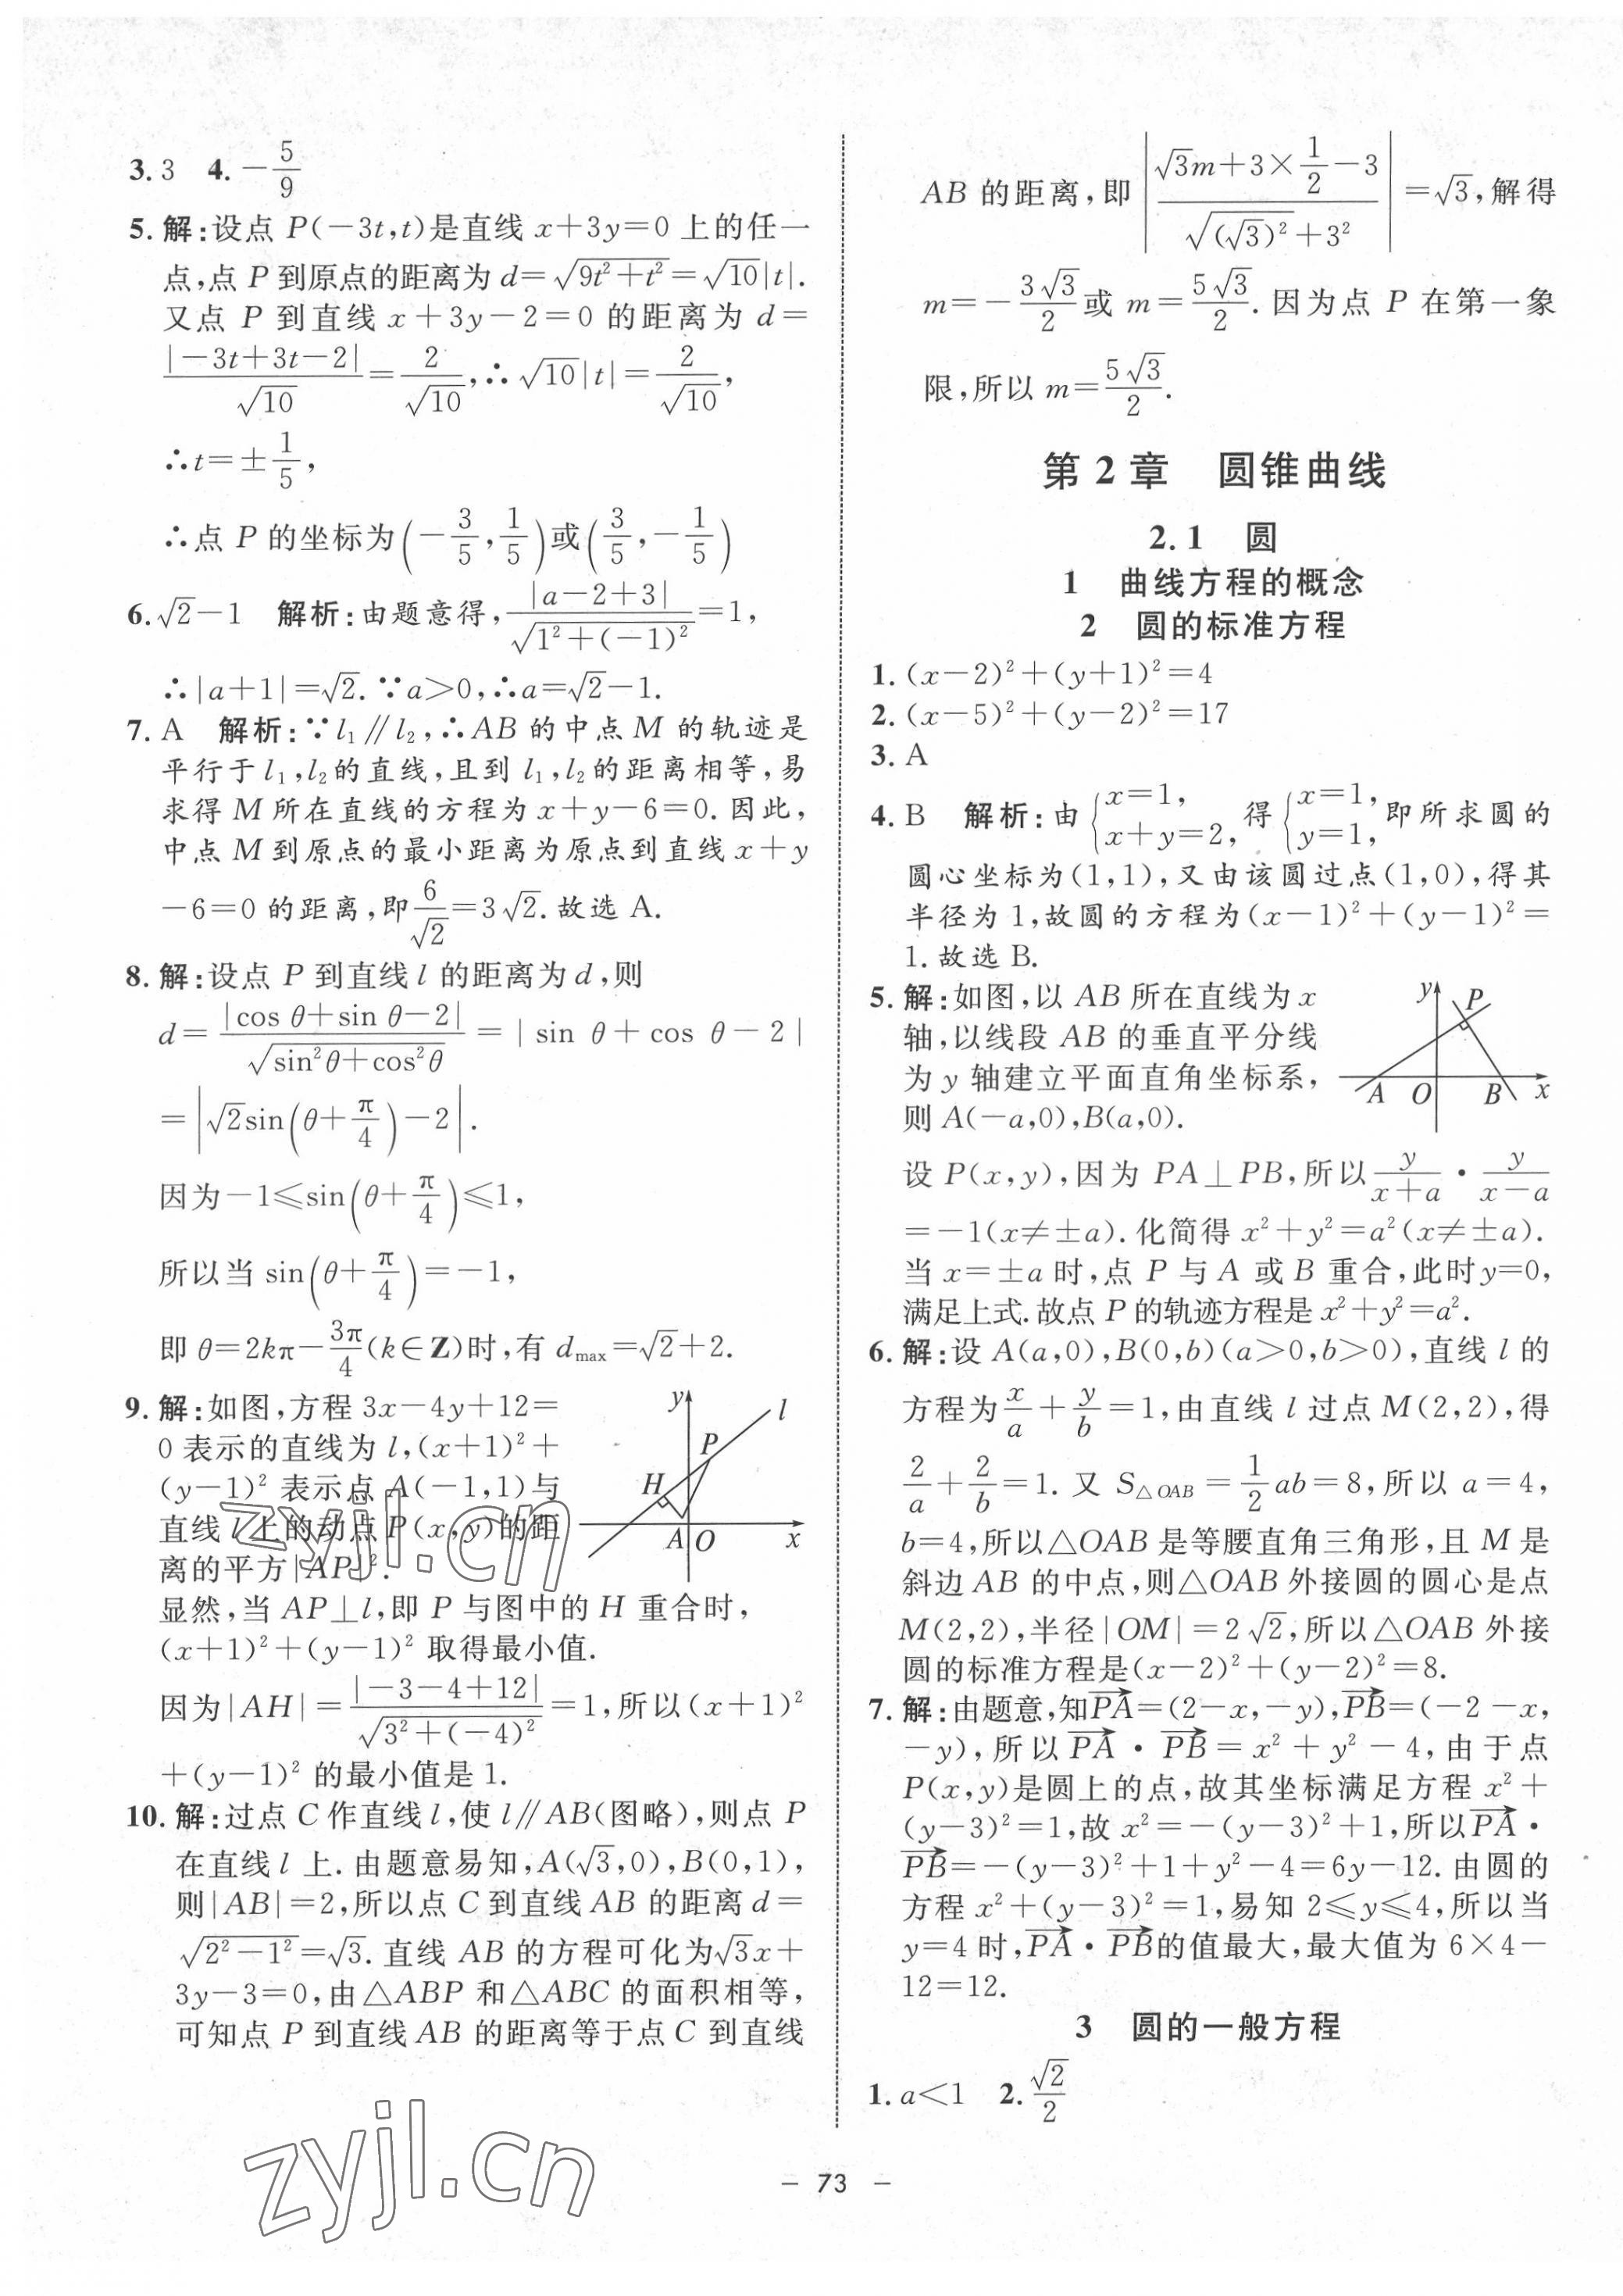 3. 3　4. $-\frac{5}{9}$
5. 解:设点 P(−3t,t)是直线 x+3y=0 上的任一
点,点 P 到原点的距离为 $d=\sqrt{9t^2+t^2}=\sqrt{10}|t|$.
又点 P 到直线 x+3y−2=0 的距离为 d=
$\frac{|-3t+3t-2|}{\sqrt{10}}=\frac{2}{\sqrt{10}}$,∴$\sqrt{10}|t|=\frac{2}{\sqrt{10}}$,
∴$t=\pm\frac{1}{5}$,
∴点 P 的坐标为$\left(-\frac{3}{5},\frac{1}{5}\right)$或$\left(\frac{3}{5},-\frac{1}{5}\right)$
6. $\sqrt{2}-1$　解析:由题意得,$\frac{|a-2+3|}{\sqrt{1^2+(-1)^2}}=1$,
∴$|a+1|=\sqrt{2}$.∵a>0,∴$a=\sqrt{2}-1$.
7. A　解析:∵$l_1∥l_2$,∴AB 的中点 M 的轨迹是
平行于 $l_1$,$l_2$的直线,且到 $l_1$,$l_2$的距离相等,易
求得 M 所在直线的方程为 x+y−6=0.因此,
中点 M 到原点的最小距离为原点到直线 x+y
−6=0 的距离,即$\frac{6}{\sqrt{2}}=3\sqrt{2}$.故选 A.
8. 解:设点 P 到直线 l 的距离为 d,则
$d=\frac{|\cos θ+\sin θ-2|}{\sqrt{\sin^2θ+\cos^2θ}}=|\sin θ+\cos θ-2|$
$=\left|\sqrt{2}\sin\left(θ+\frac{π}{4}\right)-2\right|$.
因为$-1≤\sin\left(θ+\frac{π}{4}\right)≤1$,
所以当 $\sin\left(θ+\frac{π}{4}\right)=-1$,
即 $θ=2kπ-\frac{3π}{4}(k∈\mathbf{Z})$时,有 $d_{max}=\sqrt{2}+2$.
9. 解:如图,方程 3x−4y+12=
0 表示的直线为 l,$(x+1)^2+$
$(y-1)^2$ 表示点 A(−1,1)与
直线 l 上的动点 P(x,y)的距
离的平方$|AP|^2$.
y
l
P
H
A
O
x
显然,当 AP⊥l,即 P 与图中的 H 重合时,
$(x+1)^2+(y-1)^2$ 取得最小值.
因为$|AH|=\frac{|-3-4+12|}{\sqrt{3^2+(-4)^2}}=1$,所以$(x+1)^2$
$+(y-1)^2$ 的最小值是 1.
10. 解:过点 C 作直线 l,使 l∥AB(图略),则点 P
在直线 l 上.由题意易知,$A(\sqrt{3},0)$,B(0,1),
则|AB|=2,所以点 C 到直线 AB 的距离 d=
$\sqrt{2^2-1^2}=\sqrt{3}$.直线 AB 的方程可化为$\sqrt{3}x+$
3y−3=0,由△ABP 和△ABC 的面积相等,
可知点 P 到直线 AB 的距离等于点 C 到直线
AB 的距离,即$\left|\frac{\sqrt{3}m+3×\frac{1}{2}-3}{\sqrt{(\sqrt{3})^2+3^2}}\right|=\sqrt{3}$,解得
$m=-\frac{3\sqrt{3}}{2}$或 $m=\frac{5\sqrt{3}}{2}$.因为点 P 在第一象
限,所以 $m=\frac{5\sqrt{3}}{2}$.
第 2 章　圆锥曲线
2.1　圆
1　曲线方程的概念
2　圆的标准方程
1. $(x-2)^2+(y+1)^2=4$
2. $(x-5)^2+(y-2)^2=17$
3. A
4. B　解析:由$\begin{cases}x=1,\\x+y=2,\end{cases}$得$\begin{cases}x=1,\\y=1,\end{cases}$即所求圆的
圆心坐标为(1,1),又由该圆过点(1,0),得其
半径为 1,故圆的方程为$(x-1)^2+(y-1)^2=$
1.故选 B.
5. 解:如图,以 AB 所在直线为 x
轴,以线段 AB 的垂直平分线
为 y 轴建立平面直角坐标系,
则 A(−a,0),B(a,0).
y
P
A
O
B
x
设 P(x,y),因为 PA⊥PB,所以$\frac{y}{x+a}·\frac{y}{x-a}$
=−1(x≠±a).化简得 $x^2+y^2=a^2$(x≠±a).
当 x=±a 时,点 P 与 A 或 B 重合,此时 y=0,
满足上式.故点 P 的轨迹方程是 $x^2+y^2=a^2$.
6. 解:设 A(a,0),B(0,b)(a>0,b>0),直线 l 的
方程为$\frac{x}{a}+\frac{y}{b}=1$,由直线 l 过点 M(2,2),得
$\frac{2}{a}+\frac{2}{b}=1$.又 $S_{△OAB}=\frac{1}{2}ab=8$,所以 a=4,
b=4,所以△OAB 是等腰直角三角形,且 M 是
斜边 AB 的中点,则△OAB 外接圆的圆心是点
M(2,2),半径$|OM|=2\sqrt{2}$,所以△OAB 外接
圆的标准方程是$(x-2)^2+(y-2)^2=8$.
7. 解:由题意,知$\overrightarrow{PA}=(2-x,-y)$,$\overrightarrow{PB}=(-2-x,$
−y),所以$\overrightarrow{PA}·\overrightarrow{PB}=x^2+y^2-4$,由于点
P(x,y)是圆上的点,故其坐标满足方程 $x^2+$
$(y-3)^2=1$,故 $x^2=-(y-3)^2+1$,所以$\overrightarrow{PA}·$
$\overrightarrow{PB}=-(y-3)^2+1+y^2-4=6y-12$.由圆的
方程 $x^2+(y-3)^2=1$,易知 2≤y≤4,所以当
y=4 时,$\overrightarrow{PA}·\overrightarrow{PB}$的值最大,最大值为 6×4−
12=12.
3　圆的一般方程
1. a<1　2. $\frac{\sqrt{2}}{2}$
– 73 –
zyjl.cn
zyjl.cn